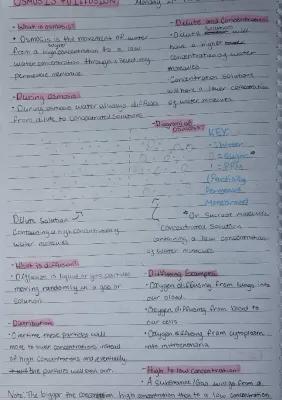 OSMOSIS + DIFFUSION
Monday 21st
• What is osmosis?
• Osmosis is the movement of water
from a high water concentration to a low
water concentration through a selectively
permeable membrane.
• During Osmosis
• During osmosis water always diffuses
from dilute to concentrated solutions.
• Dilute and Concentrated
• Dilute solutions will
have a higher
concentration of water
molecules
• Concentration solutions
will have a lower concentration
of water molecules.
• Diagram of
Osmosis:
KEY:
= Water
= Sugar *
= PPM
(Partially
Permeable
Membrane)
Dilute Solution
Containing a high concentration of
water molecules
* Or Sucrose molecules
Concentrated Solutions
containing a low concentration
of water molecules
• What is diffusion?
• Diffusion is liquid or gas particles
moving randomly in a gas or
solution.
• Distribution
• Overtime these particles will
move to lower concentrations instead
of high concentrations and eventually
the particles will even out.
• Diffusing Examples
• Oxygen diffusing from lungs into
our blood.
• Oxygen diffusing from blood to
our cells
• Oxygen diffusing from cytoplasm
into mitochondria.
• High to low concentration?
• A Substance/Gas will go from a
high concentration to a low concentration
Note: The bigger the concentration